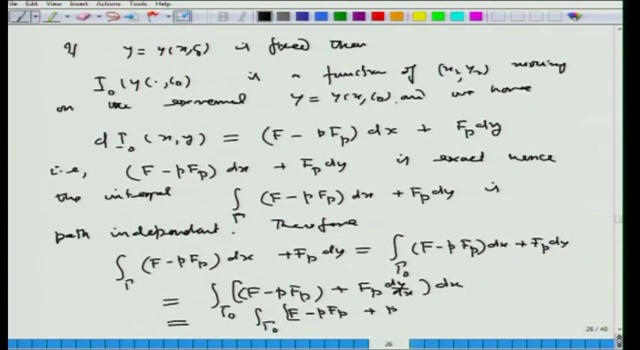 File Edit View Insert Actions Tools Help
If y = y(x,δ) is fixed then
I₀(y(·,c₀) is a function of (x₂,y₂) moving
on the extremal y = y(x,c₀) and we have
dI₀(x,y) = (F - pFp) dx + Fp dy
i.e., (F - pFp) dx + Fp dy is exact hence
the integral ∫_Γ (F - pFp) dx + Fp dy is
path independent. Therefore
∫_Γ (F - pFp) dx + Fp dy = ∫_Γ₀ (F - pFp) dx + Fp dy
= ∫_Γ₀ [(F - pFp) + Fp dy/dx) dx
= ∫_Γ₀ [F - pFp + p
26 / 40
26